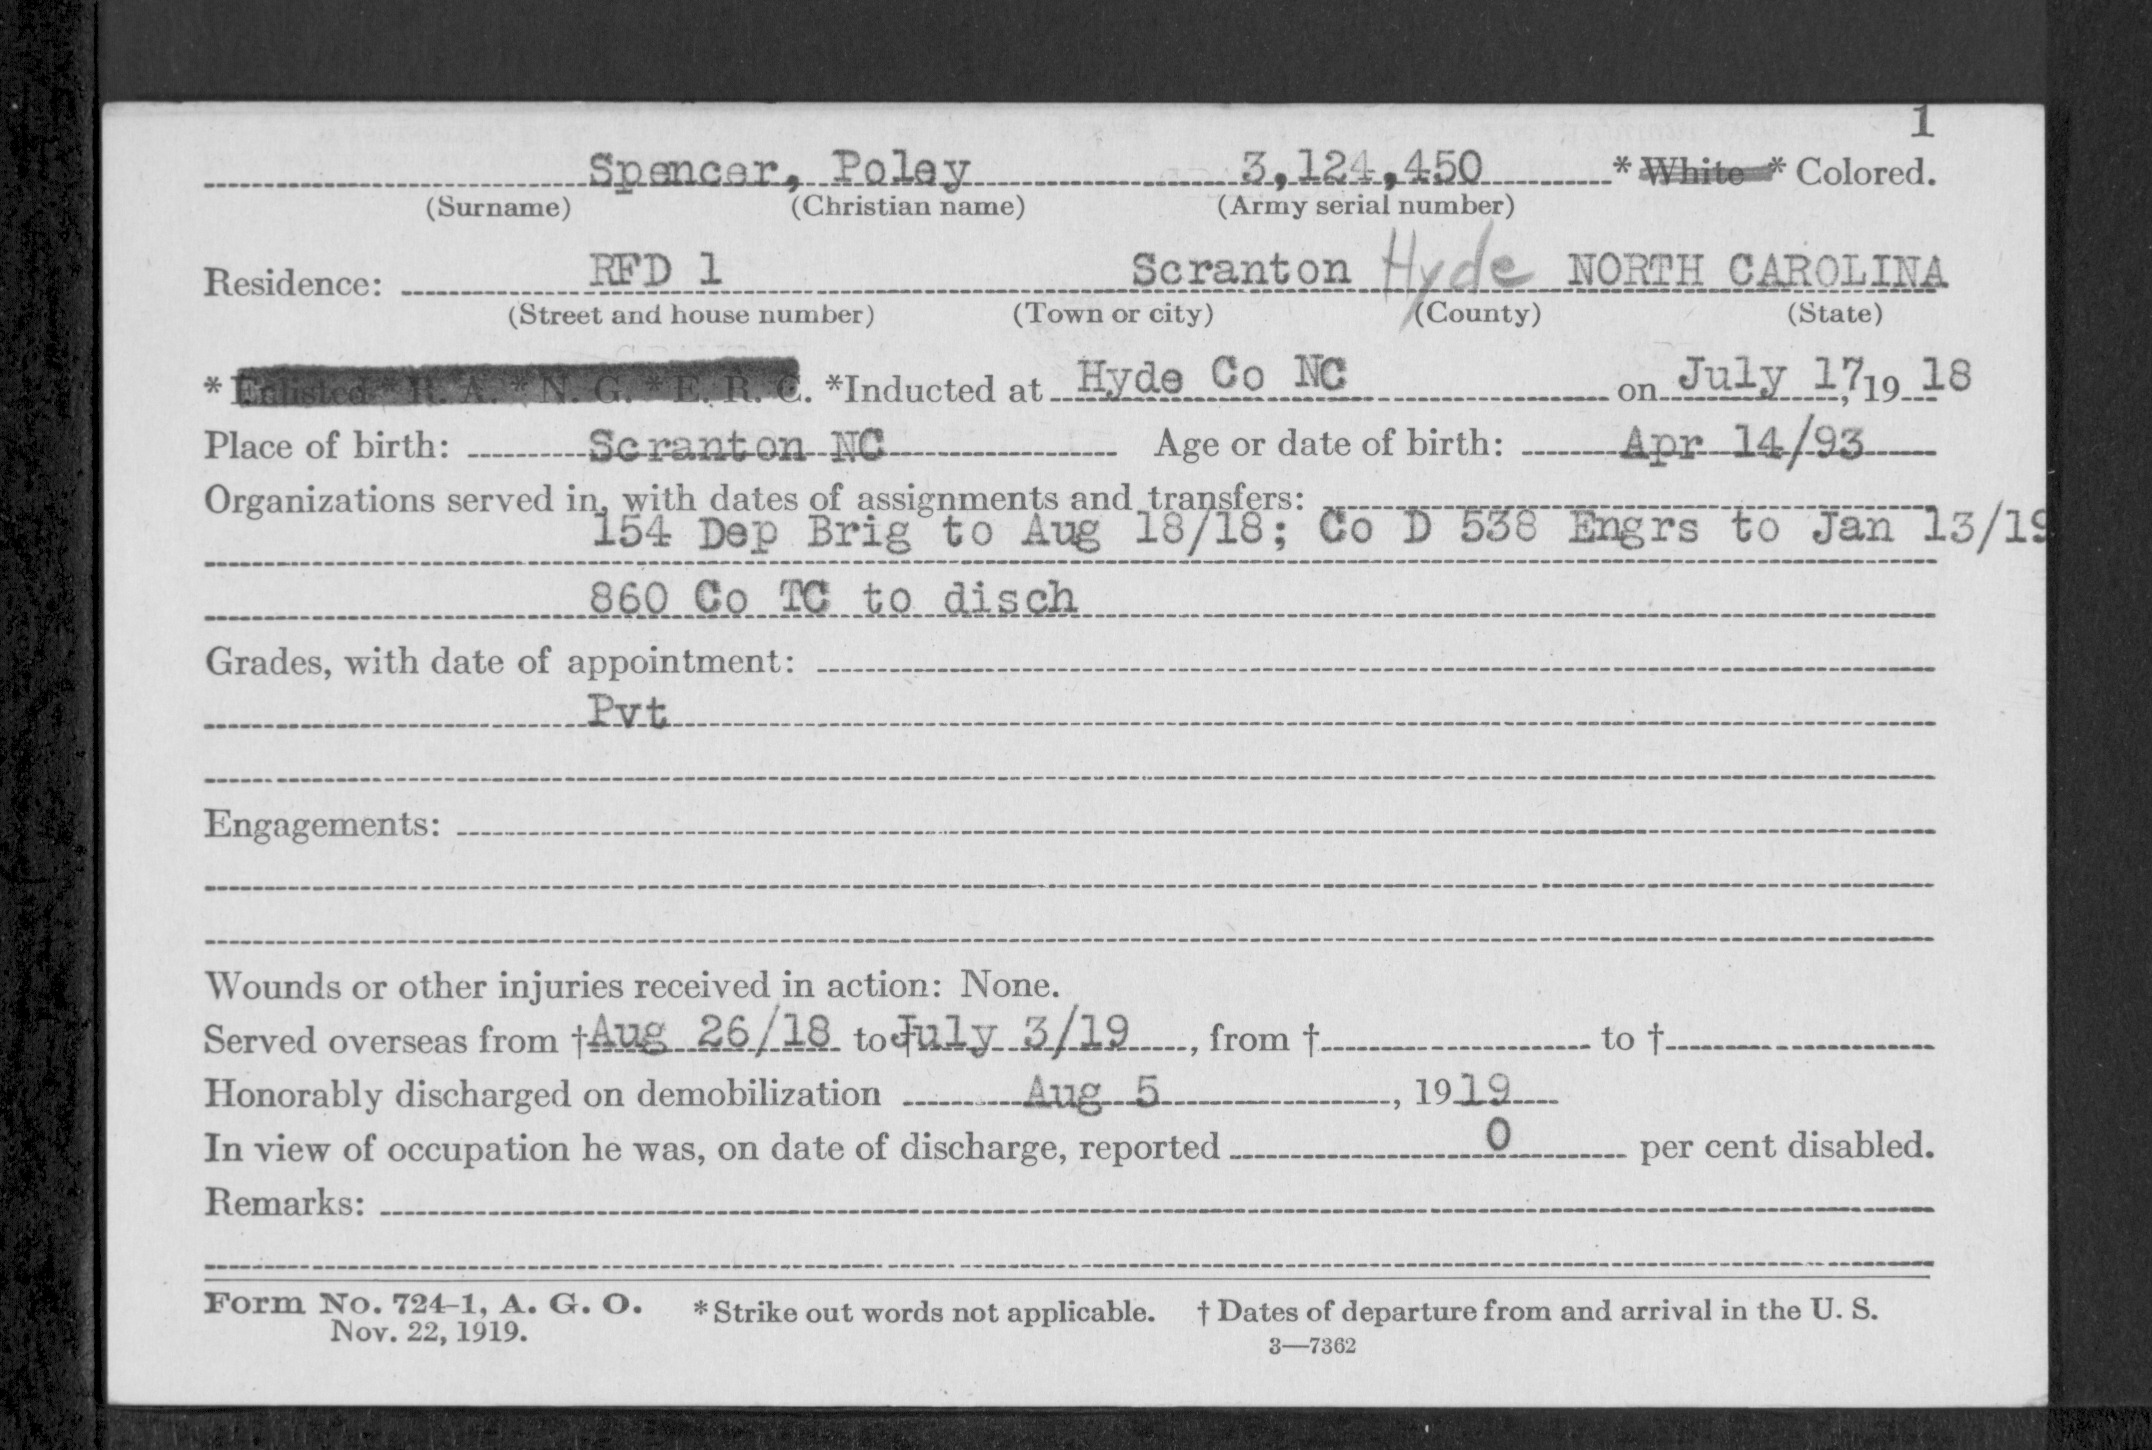 1
Spencer, Poley 3,124,450 * White * Colored.
(Surname) (Christian name) (Army serial number)
Residence: RFD 1 Scranton Hyde NORTH CAROLINA
(Street and house number) (Town or city) (County) (State)
* Enlisted * R. A. * N. G. * E. R. C. *Inducted at Hyde Co NC on July 17, 19 18
Place of birth: Scranton NC Age or date of birth: Apr 14/93
Organizations served in, with dates of assignments and transfers:
154 Dep Brig to Aug 18/18; Co D 538 Engrs to Jan 13/19
860 Co TC to disch
Grades, with date of appointment:
Pvt
Engagements:
Wounds or other injuries received in action: None.
Served overseas from † Aug 26/18 to † July 3/19, from † to †
Honorably discharged on demobilization Aug 5, 1919
In view of occupation he was, on date of discharge, reported 0 per cent disabled.
Remarks:
Form No. 724-1, A. G. O. *Strike out words not applicable. † Dates of departure from and arrival in the U. S.
Nov. 22, 1919. 3—7362